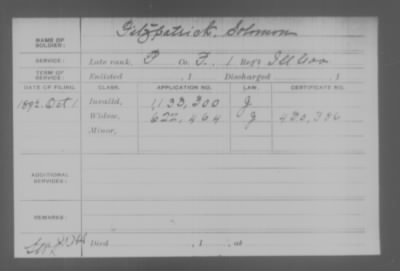 Fitzpatrick, Solomon
NAME OF
SOLDIER:
SERVICE: Late rank, P Co. F, 1 Reg't Ill Cav
TERM OF
SERVICE: Enlisted , 1 Discharged , 1
DATE OF FILING. CLASS. APPLICATION NO. LAW. CERTIFICATE NO.
1892 Oct 1 Invalid, 1133,300 J
Widow, 622,464 J 430,396
Minor,
ADDITIONAL
SERVICES:
REMARKS:
Died , 1 , at